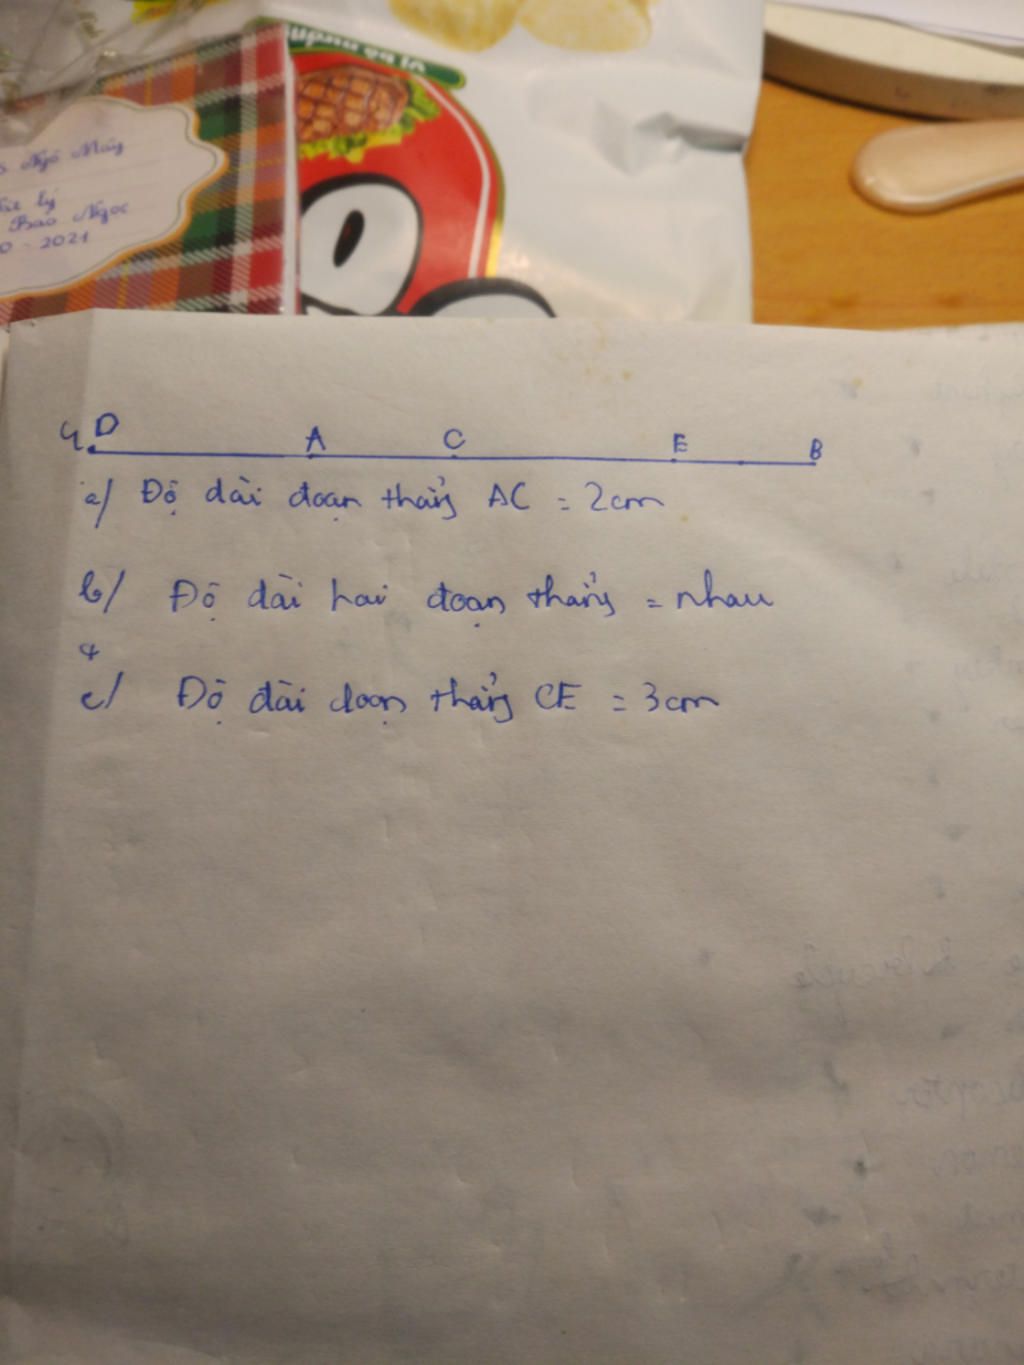 Vị bò nướng
Ngô Mây
Bảo Ngọc
0 - 2021
4.
D A C E B
a/ Độ dài đoạn thẳng AC = 2cm
b/ Độ dài hai đoạn thẳng = nhau
c/ Độ đài doạn thẳng CE = 3cm